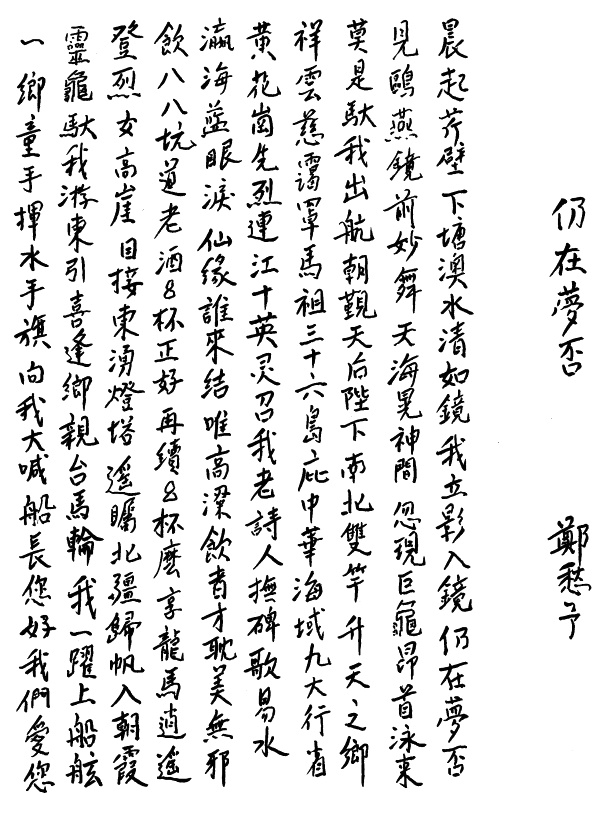 仍在夢否
鄭愁予
晨起芹壁下塘澳水清如鏡我立影入鏡仍在夢否
見鷗燕鏡前妙舞天海晃神間忽現巨龜昂首泳來
莫是馱我出航朝覲天后陛下南北雙竿升天之鄉
祥雲慈靄罩馬祖三十六島庇中華海域九大行省
黃花崗先烈連江十英灵召我老詩人撫碑歌易水
瀛海藍眼淚仙緣誰來結唯高梁飲者才耽美無邪
飲八八坑道老酒8杯正好再續8杯麽享龍馬逍遙
登烈女高崖目接東湧燈塔遥矚北疆歸帆入朝霞
靈龜馱我游東引喜逢鄉親台馬輪我一躍上船舷
一鄉童手揮水手旗向我大喊船長您好我們愛您